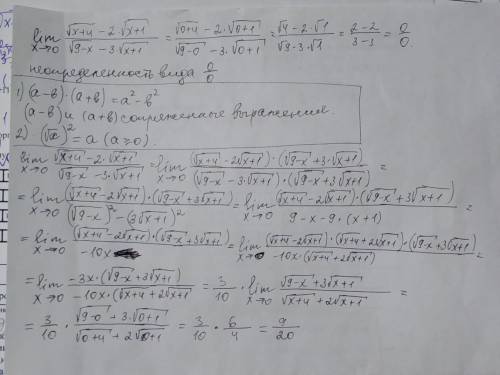 lim x→0 (√(x+4) − 2·√(x+1))/(√(9−x) − 3√(x+1)) = (√(0+4) − 2·√(0+1))/(√(9−0) − 3·√(0+1)) = (√4 − 2·√1)/(√9 − 3·√1) = (2−2)/(3−3) = 0/0.
неопределенность вида 0/0
1) (a−b)·(a+b) = a² − b²
(a−b) и (a+b) сопряженные выражение.
2) (√a)² = a (a≥0).
lim x→0 (√(x+4) − 2·√(x+1))/(√(9−x) − 3√(x+1)) = lim x→0 ((√(x+4) − 2√(x+1))·(√(9−x) + 3·√(x+1)))/((√(9−x) − 3√(x+1))·(√(9−x) + 3√(x+1))) =
= lim x→0 ((√(x+4) − 2√(x+1))·(√(9−x) + 3√(x+1)))/((√(9−x))² − (3√(x+1))²) = lim x→0 ((√(x+4) − 2√(x+1))·(√(9−x) + 3√(x+1)))/(9−x−9·(x+1)) =
= lim x→0 ((√(x+4) − 2√(x+1))·(√(9−x) + 3√(x+1)))/(−10x) = lim x→0 ((√(x+4) − 2√(x+1))·(√(x+4) + 2√(x+1))·(√(9−x) + 3√(x+1)))/(−10x·(√(x+4) + 2√(x+1))) =
= lim x→0 (−3x·(√(9−x) + 3√(x+1)))/(−10x·(√(x+4) + 2√(x+1))) = 3/10 · lim x→0 (√(9−x) + 3√(x+1))/(√(x+4) + 2√(x+1)) =
= 3/10 · (√(9−0) + 3·√(0+1))/(√(0+4) + 2√(0+1)) = 3/10 · 6/4 = 9/20